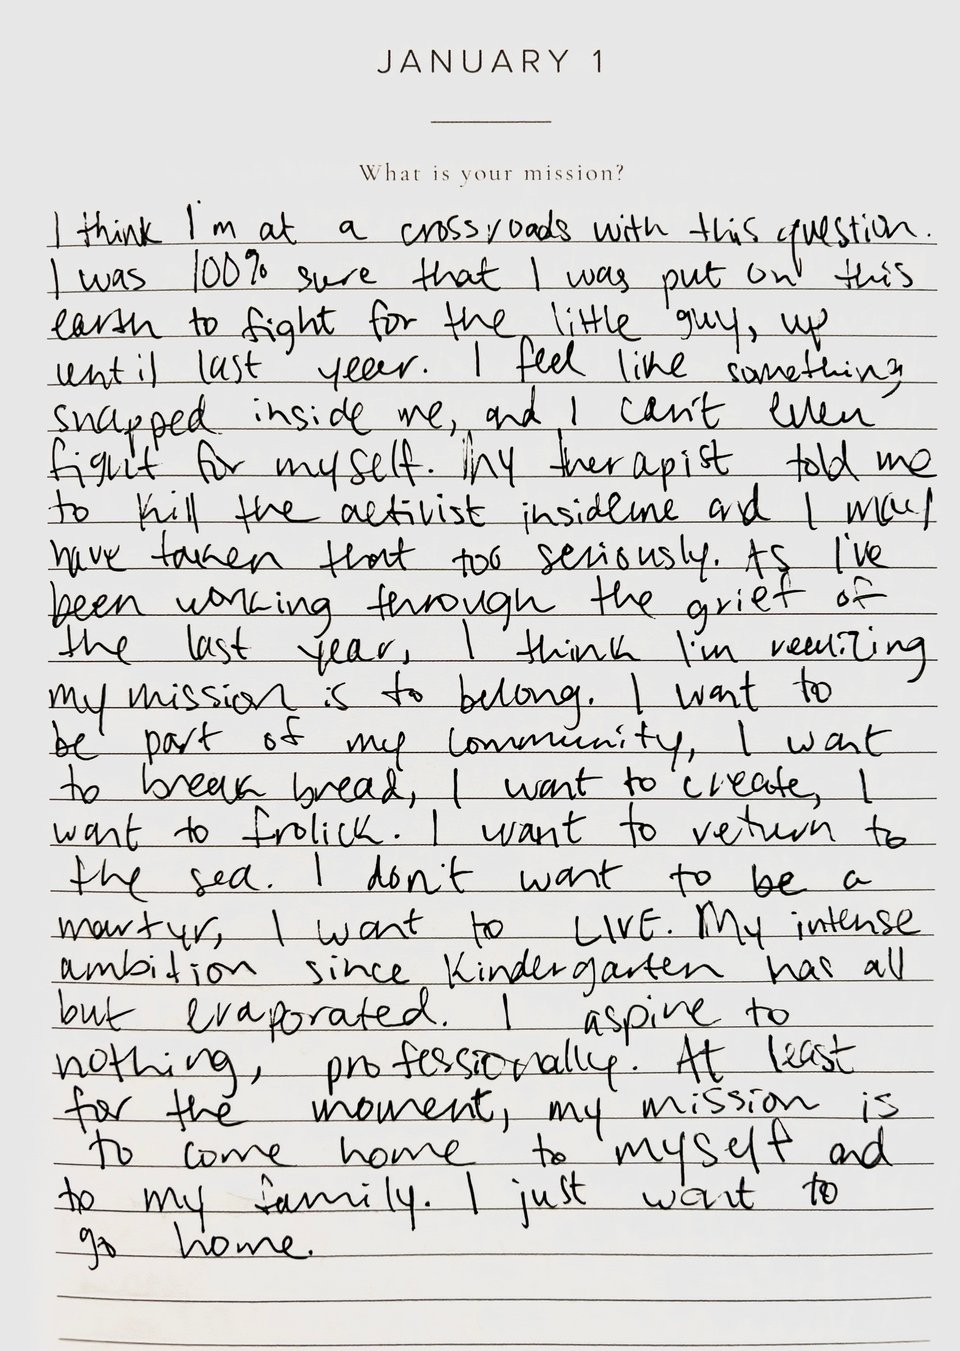 JANUARY 1
What is your mission?
I think I'm at a crossroads with this question.
I was 100% sure that I was put on this
earth to fight for the little guy, up
until last year. I feel like something
snapped inside me, and I can't even
fight for myself. My therapist told me
to kill the activist inside me and I may
have taken that too seriously. As I've
been working through the grief of
the last year, I think I'm realizing
my mission is to belong. I want to
be part of my community, I want
to break bread, I want to create, I
want to frolick. I want to return to
the sea. I don't want to be a
martyr, I want to LIVE. My intense
ambition since Kindergarten has all
but evaporated. I aspire to
nothing, professionally. At least
for the moment, my mission is
to come home to myself and
to my family. I just want to
go home.